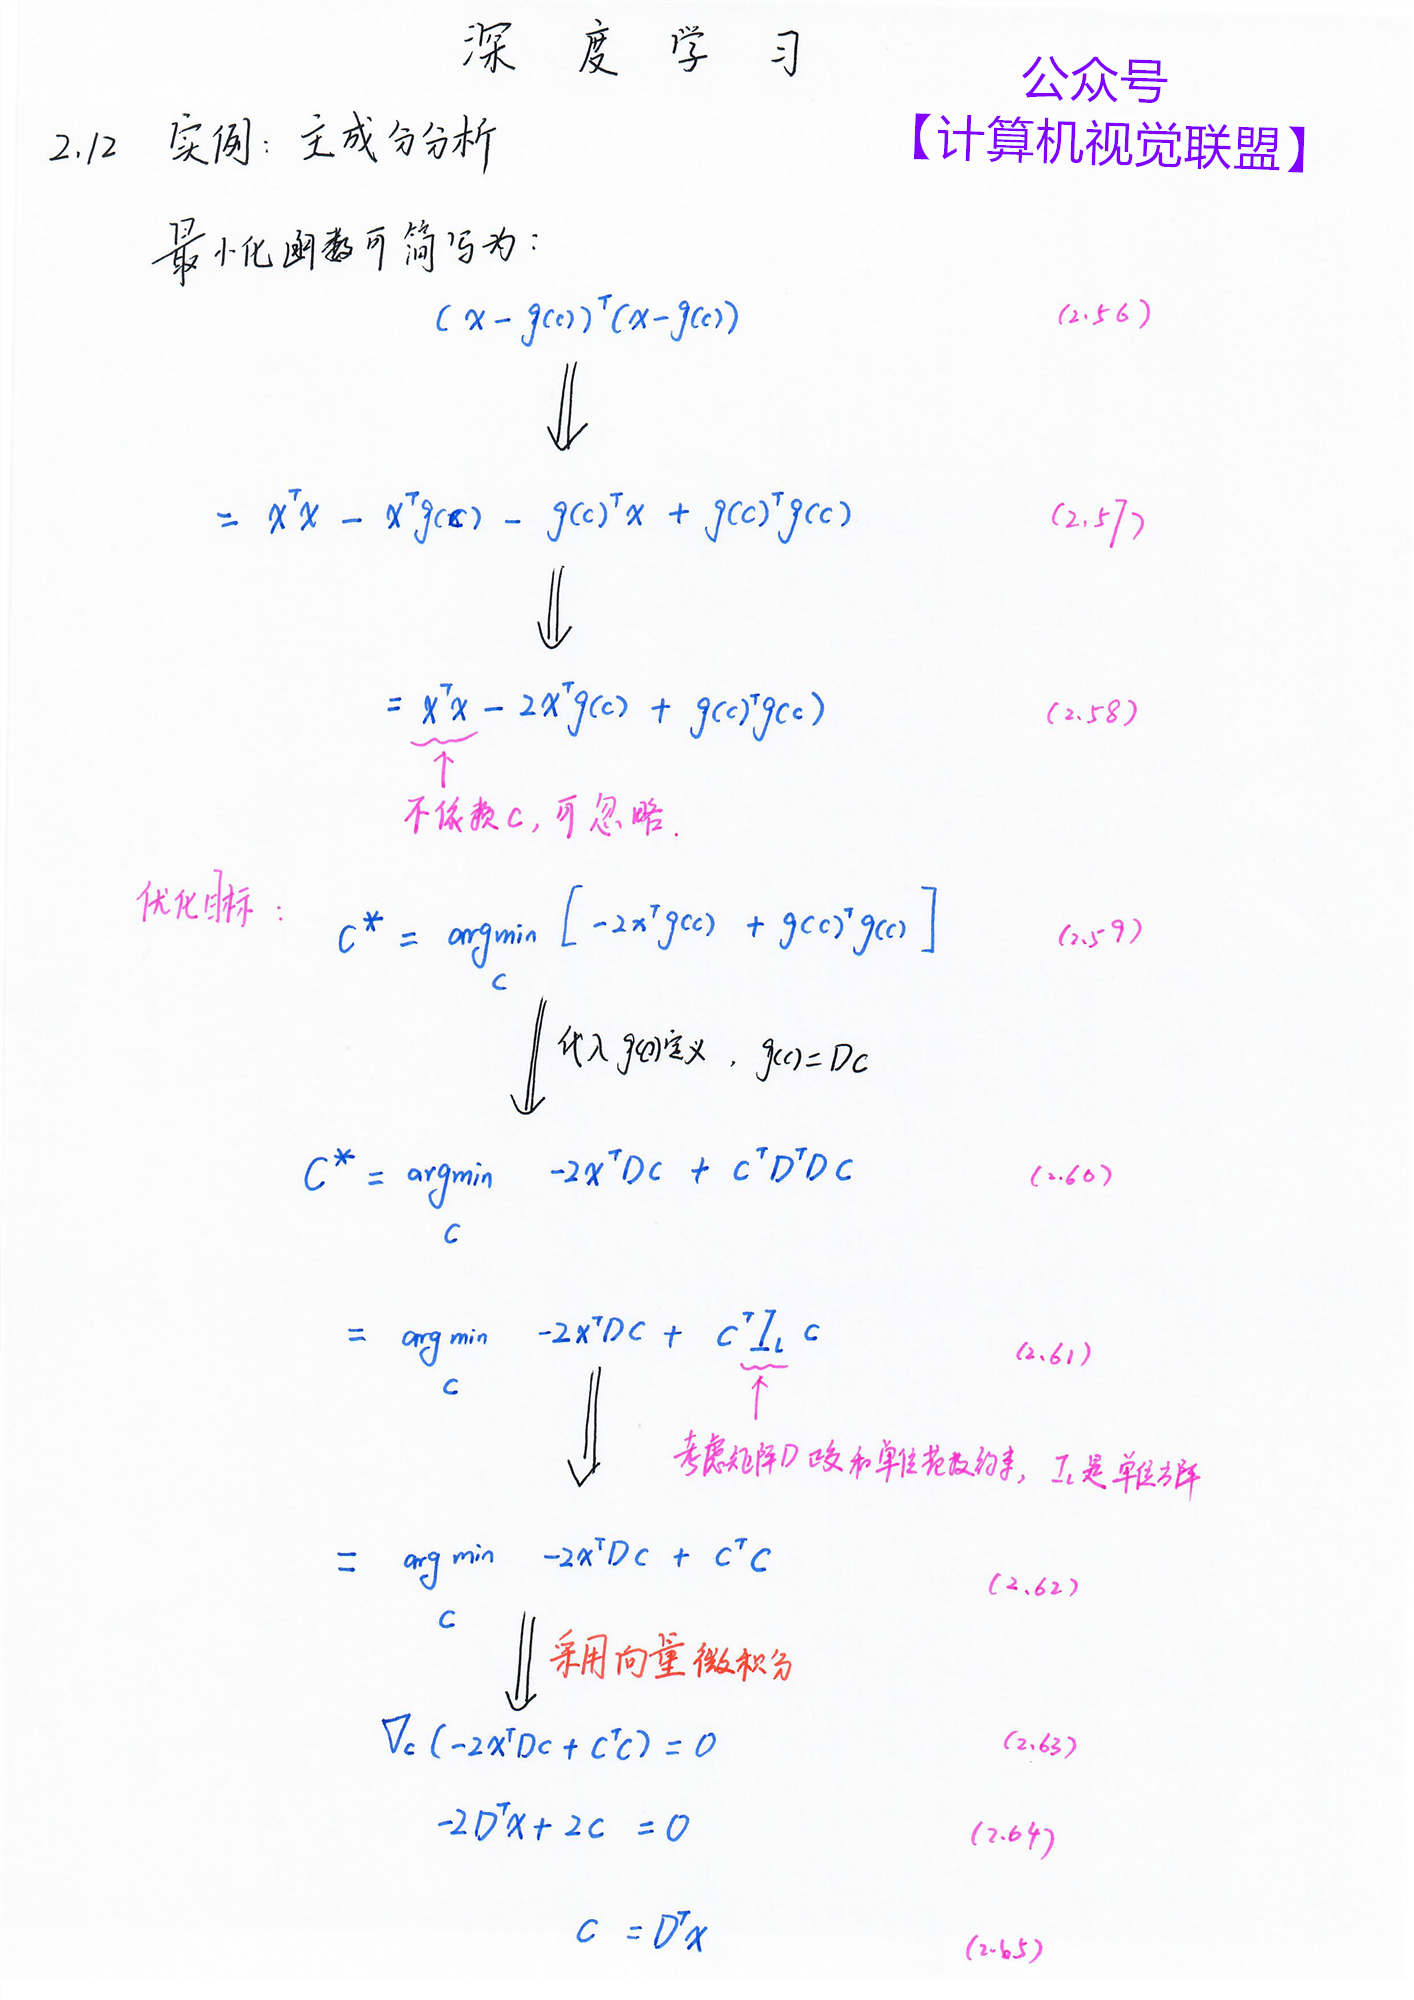 深度学习
公众号
【计算机视觉联盟】
2.12 实例：主成分分析
最小化函数可简写为：
(x - g(c))ᵀ(x - g(c)) (2.56)
= xᵀx - xᵀg(c) - g(c)ᵀx + g(c)ᵀg(c) (2.57)
= xᵀx - 2xᵀg(c) + g(c)ᵀg(c) (2.58)
不依赖c, 可忽略.
优化目标：
C* = argmin [-2xᵀg(c) + g(c)ᵀg(c)] (2.59)
c
代入g(c)定义，g(c) = Dc
C* = argmin -2xᵀDc + CᵀDᵀDC (2.60)
c
= argmin -2xᵀDC + CᵀIₗc (2.61)
c
考虑矩阵D正交和单位范数约束, Iₗ是单位方阵
= argmin -2xᵀDc + CᵀC (2.62)
c
采用向量微积分
∇c(-2xᵀDc + CᵀC) = 0 (2.63)
-2Dᵀx + 2c = 0 (2.64)
C = Dᵀx (2.65)